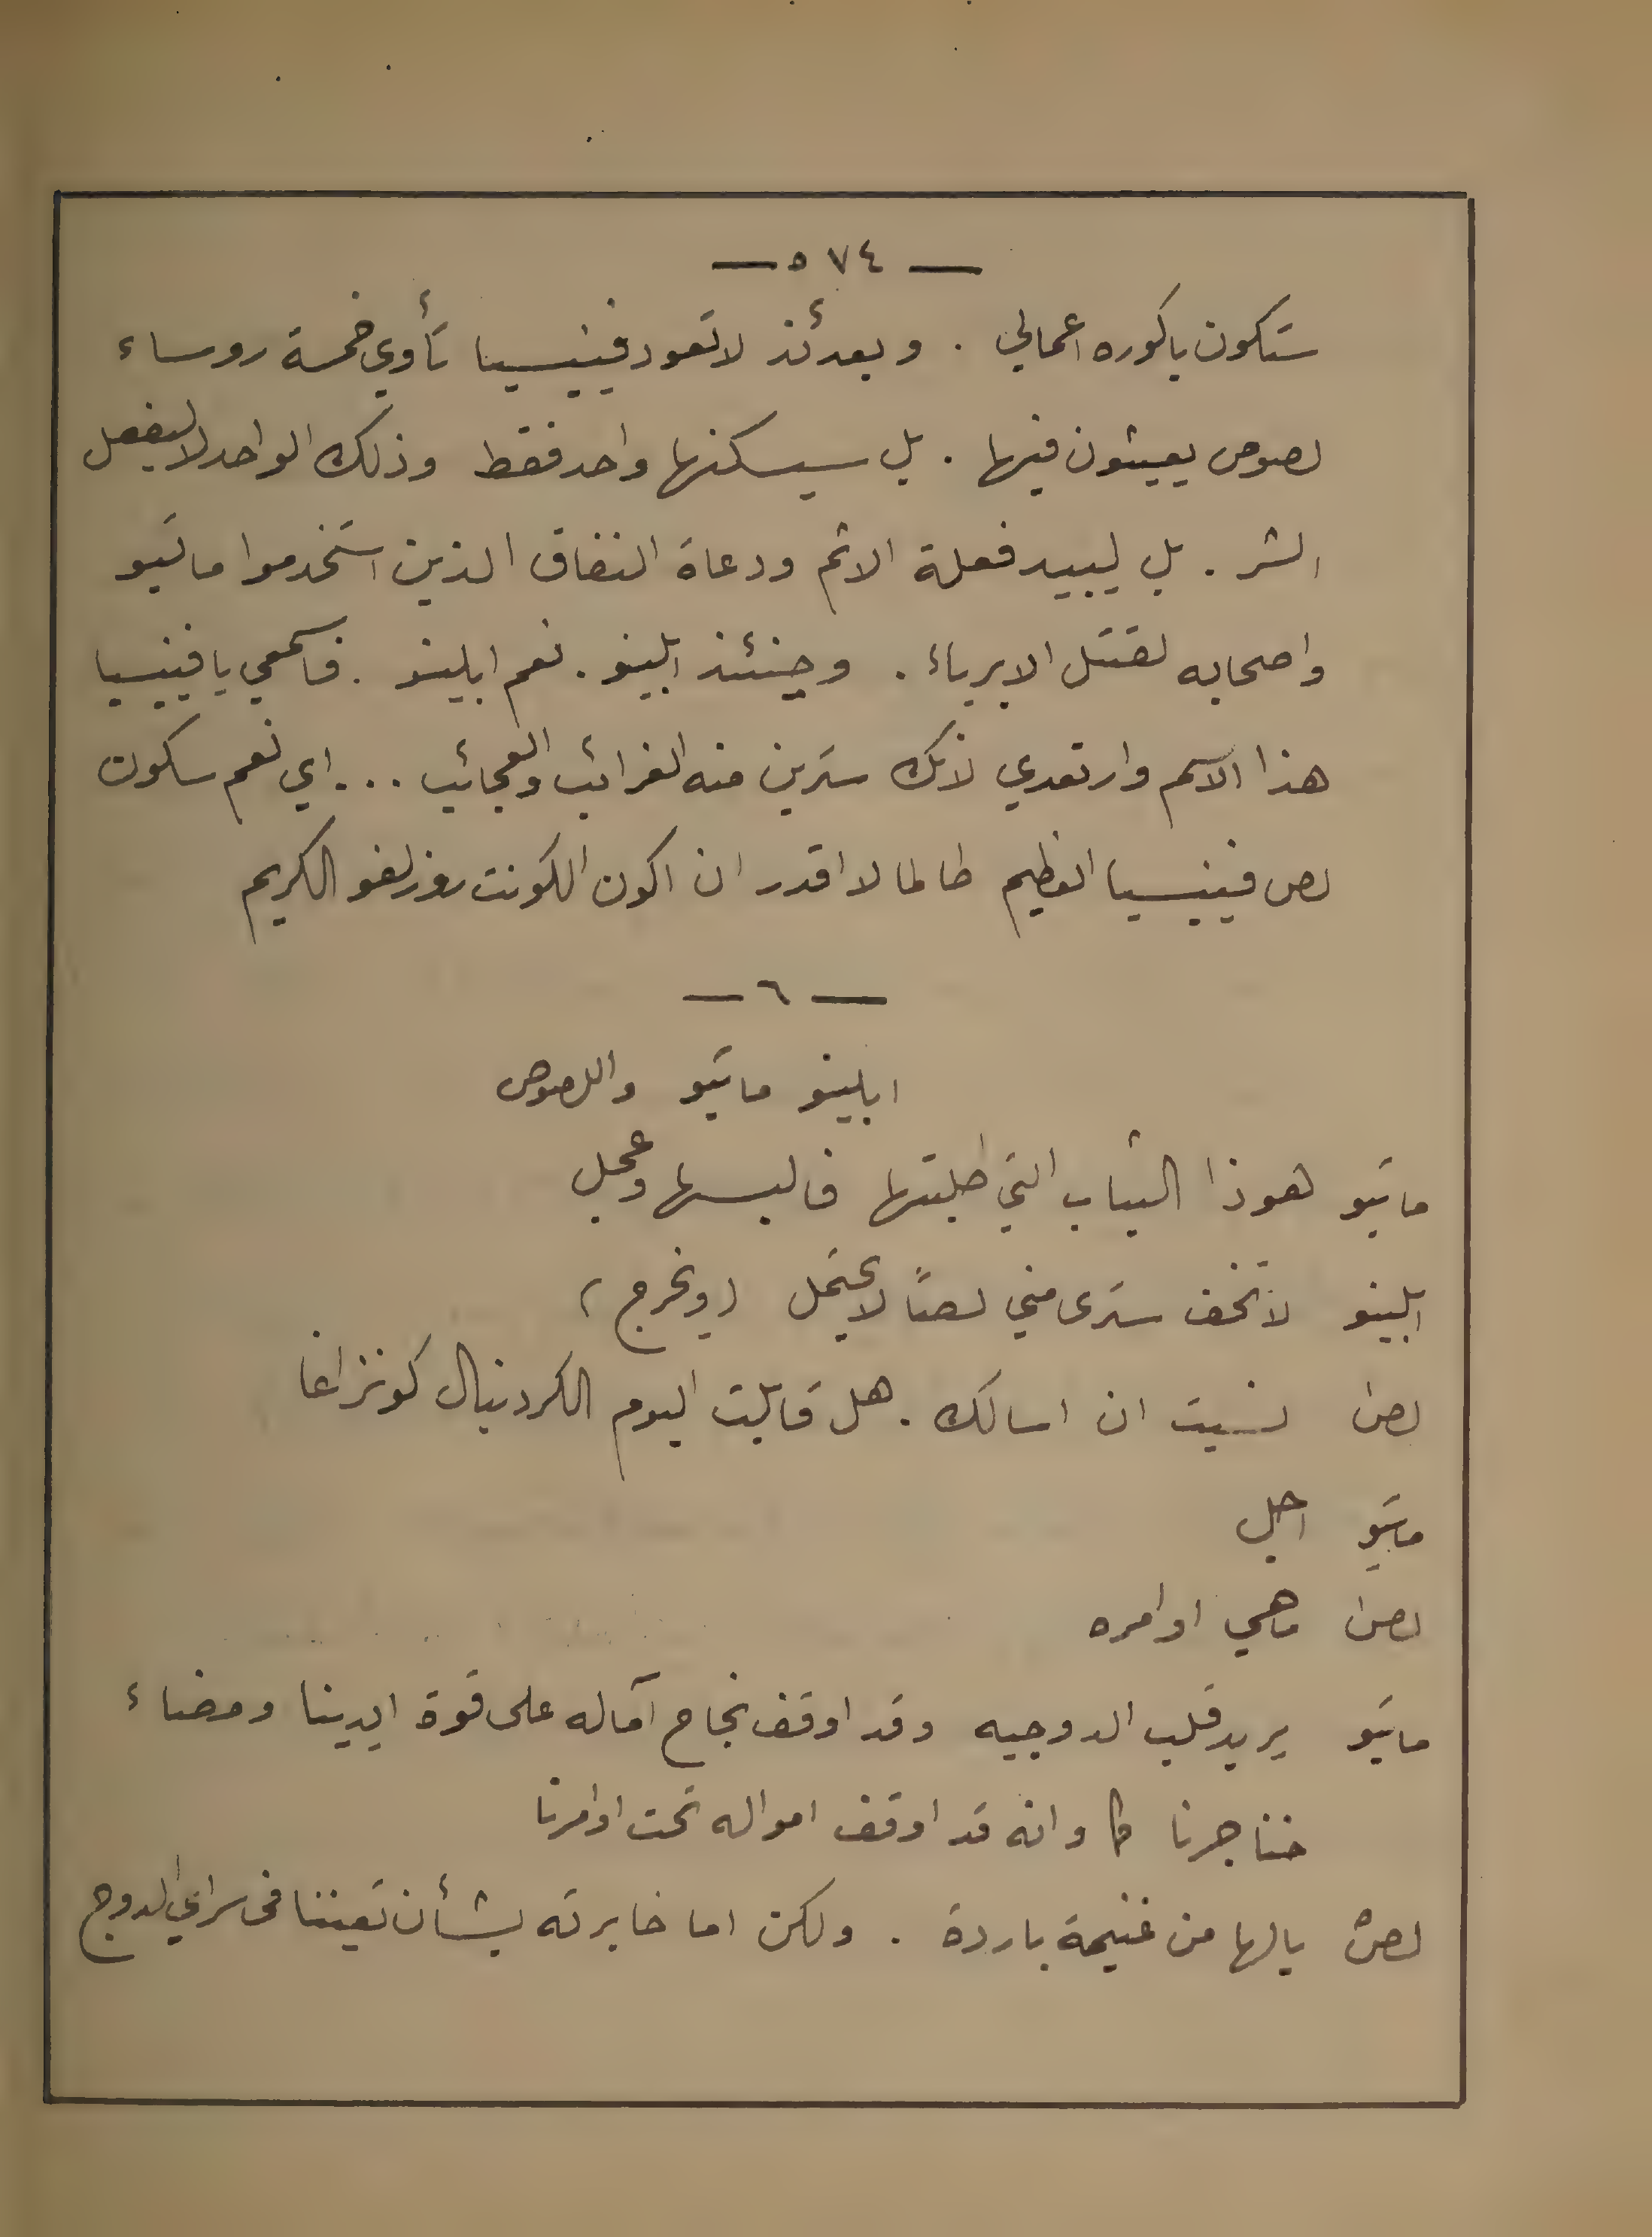 — ٥٧٤ —
ستكون باكوره اعمالي . وبعدئذ لا تعود فينيسيا تأوي خمسة روساء
لصوص يعيثون فيها . بل سيسكنها واحد فقط وذلك الواحد لا ليفعل
الشر . بل ليبيد فعلة الاثم ودعاة النفاق الذين استخدموا ماتيو
واصحابه لقتل الابرياء . وحينئذ ابلينو . نعم ابلينو . فاسمعي يا فينيسيا
هذا الاسم وارتعدي لانك سترين منه الغرائب والعجائب ... اي نعم ساكون
لص فينيسيا العظيم طالما لا اقدر ان اكون الكونت روزلفو الكريم
— ٦ —
ابلينو ماتيو واللصوص
ماتيو هوذا الثياب التي طلبتها فالبسها وعجل
ابلينو لا تخف سترى مني لصاً لا يحتمل (ويخرج)
لص١ نسيت ان اسالك . هل قابلت اليوم الكردينال كونزاغا
ماتيو اجل
لص١ ما هي اوامره
ماتيو يريد قلب الدوجيه وقد اوقف نجاح آماله على قوة ايدينا ومضاء
خناجرنا كما وانه قد اوقف امواله تحت اوامرنا
لص٥ يالها من غنيمة باردة . ولكن اما خابرته بشأن تعيننا فى سراي الدوج